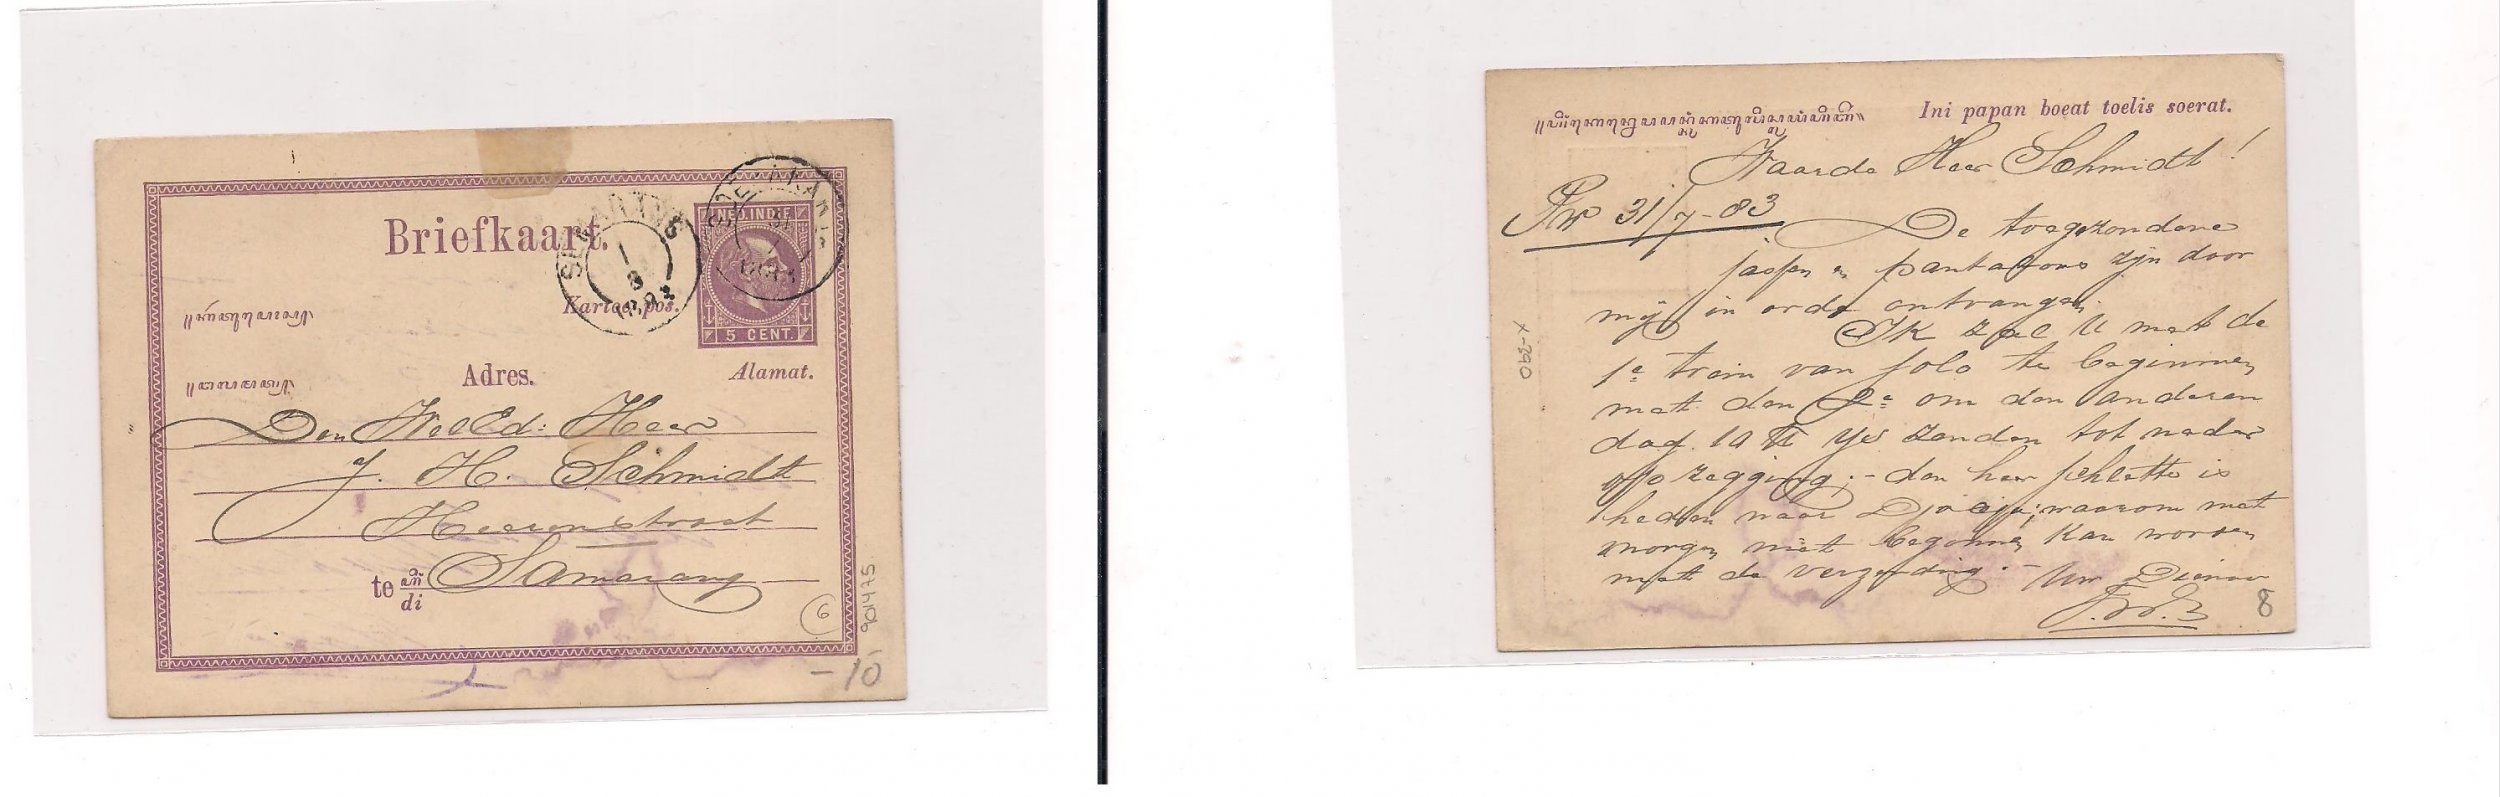 Briefkaart.
NED. INDIE
SEMARANG
1
8
1883
SOERAKARTA
31
7
1883
Kartoe pos.
5 CENT.
Adres.
Alamat.
Den WelEd: Heer
J. H. Schmidt
Heerenstraat
te di Samarang
6
901475
-10
Ini papan boeat toelis soerat.
Waarde Heer Schmidt!
31/7-83
De toegezondene
jassen en pantalons zijn door
mij in orde ontvangen.
Ik zal U met de
1e trein van Solo te beginnen
met den 2e om den anderen
dag 10 ys zenden tot nader
opzegging; - den heer Schlette is
heden naar Djocja; waarom met
morgen niet begonnen kan worden
met de verzending. - Uw Dienaar
X-390
8